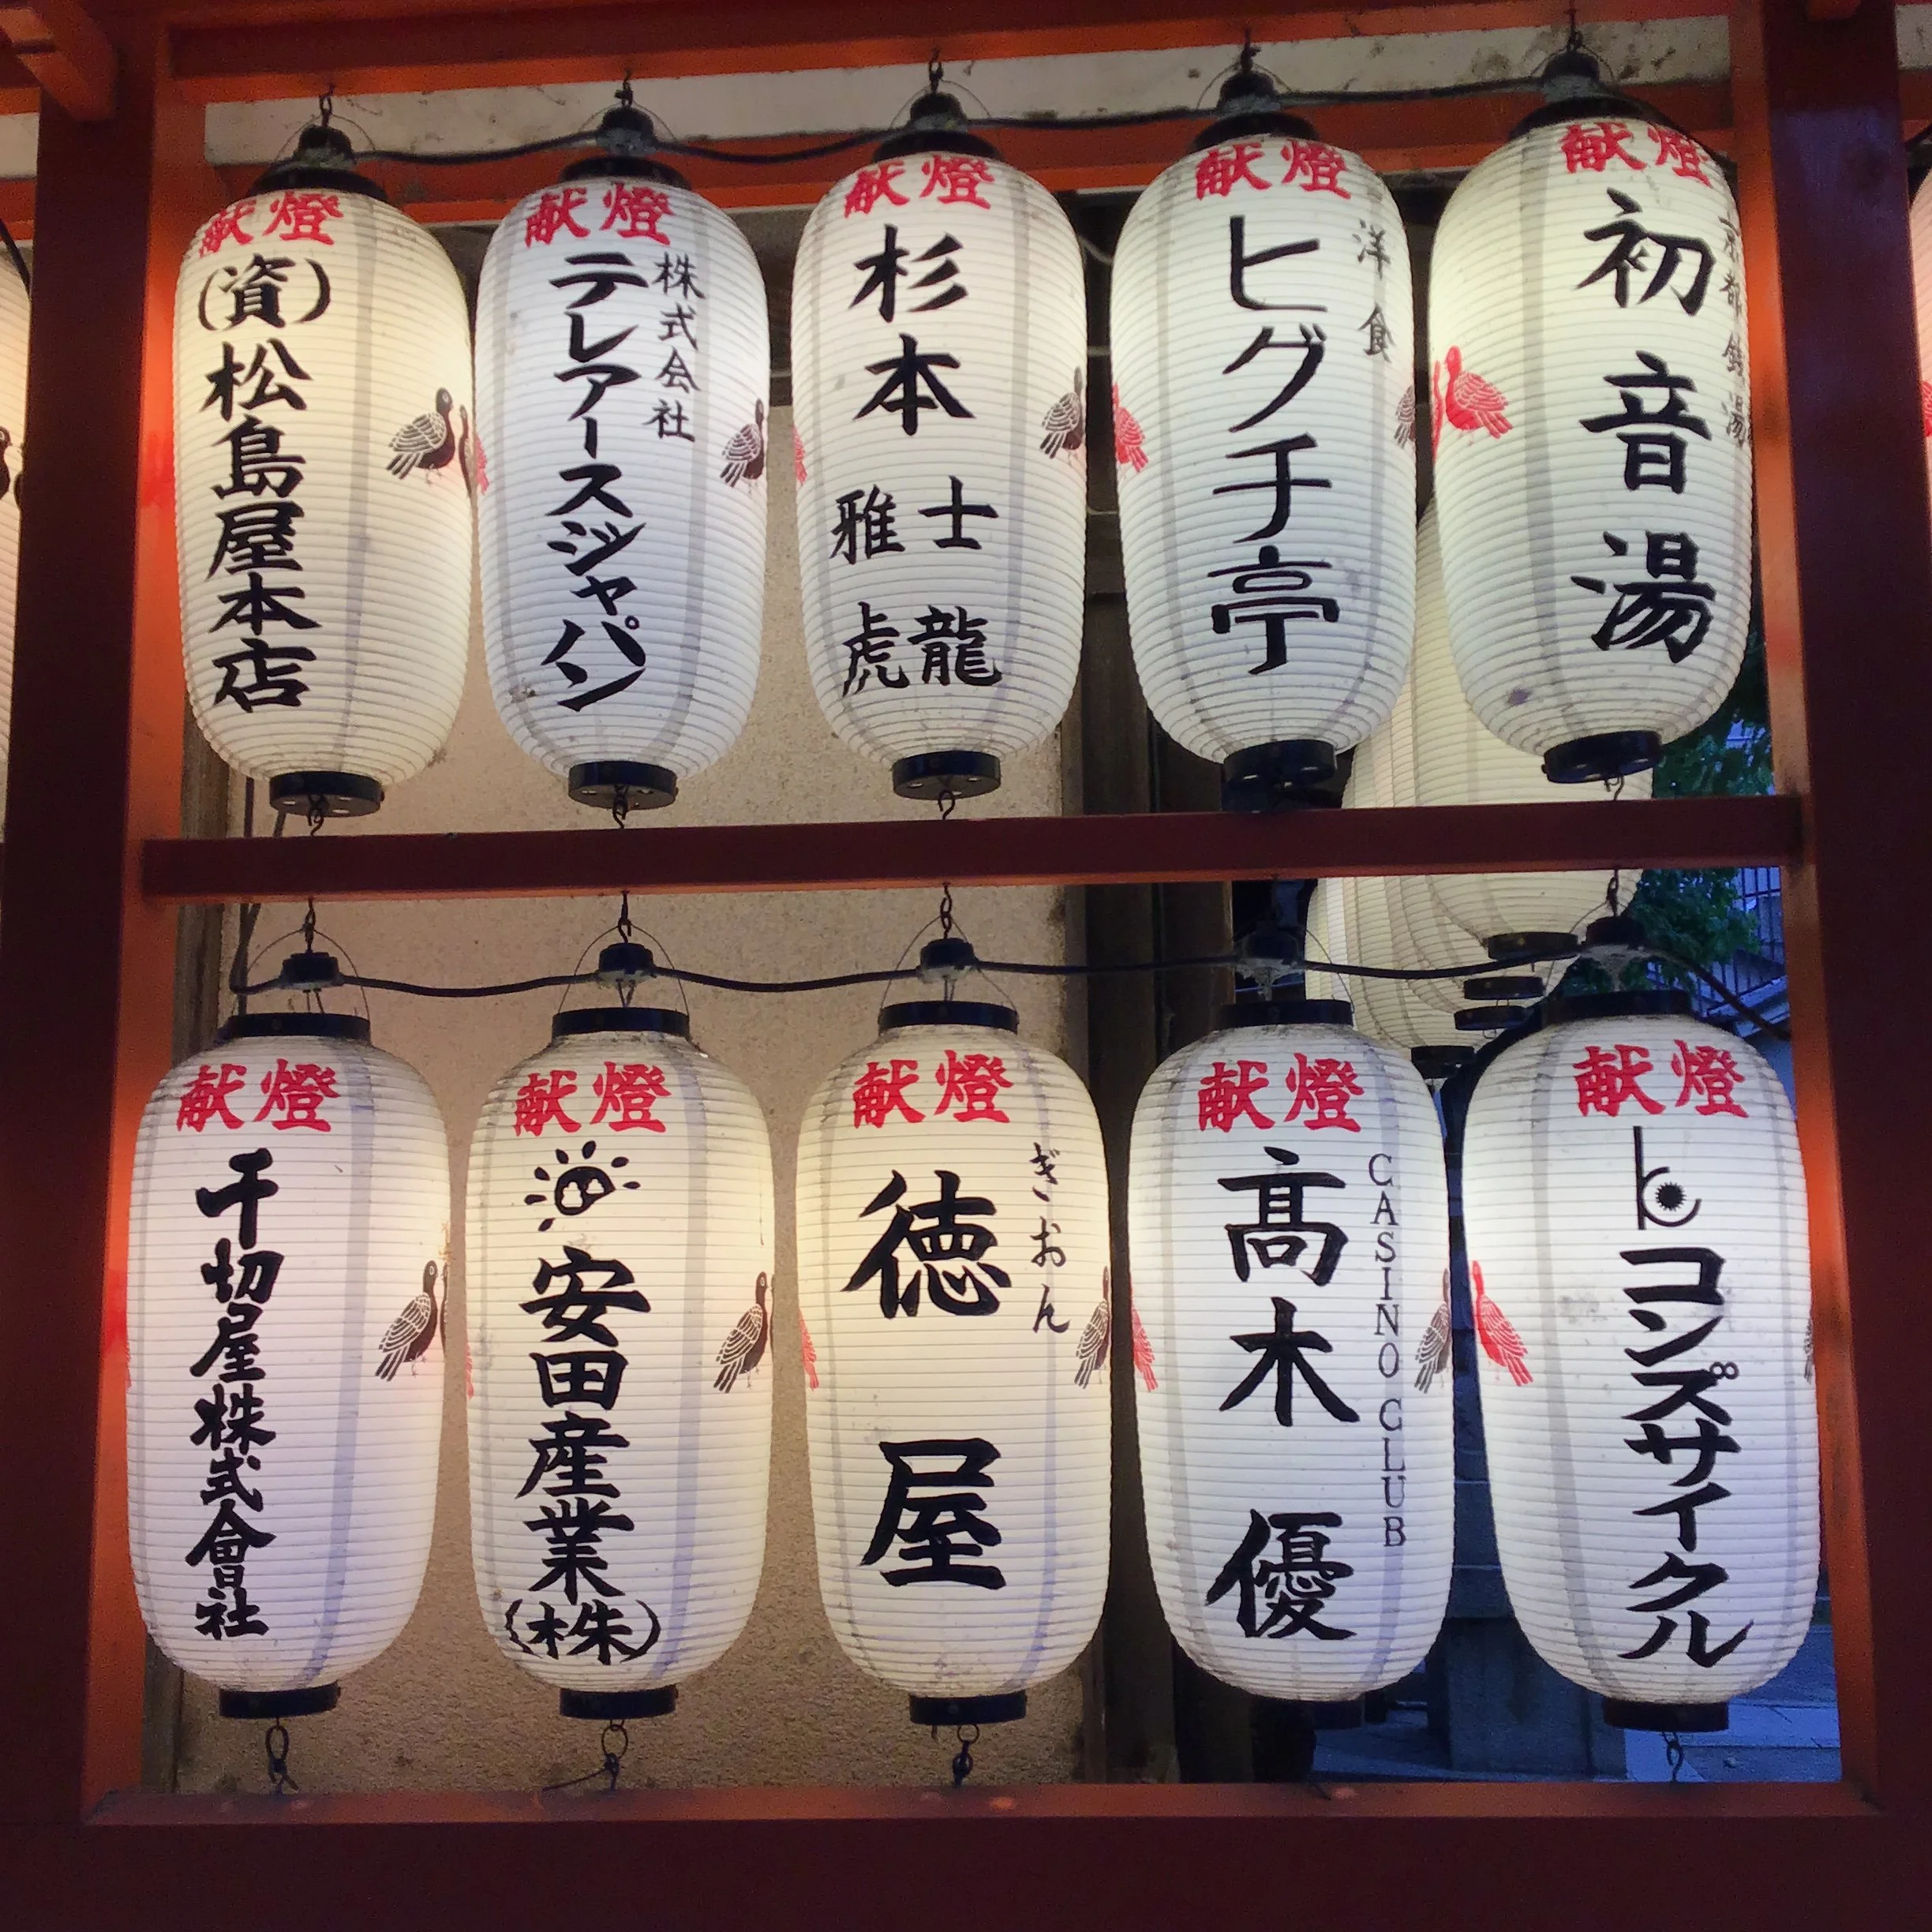 献燈
(資)松島屋本店
献燈
株式会社
テレアースジャパン
献燈
杉本
士龍
雅虎
献燈
洋食
ヒグチ亭
献燈
京都銭湯
初音湯
献燈
千切屋株式會社
献燈
安田産業(株)
献燈
ぎおん
徳屋
献燈
CASINO CLUB
髙木優
献燈
コンズサイクル